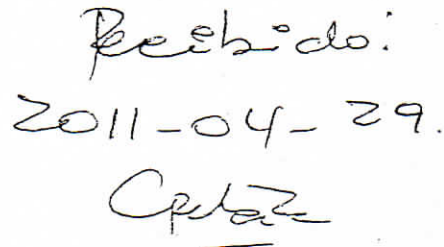 Recibido:
2011-04-29.